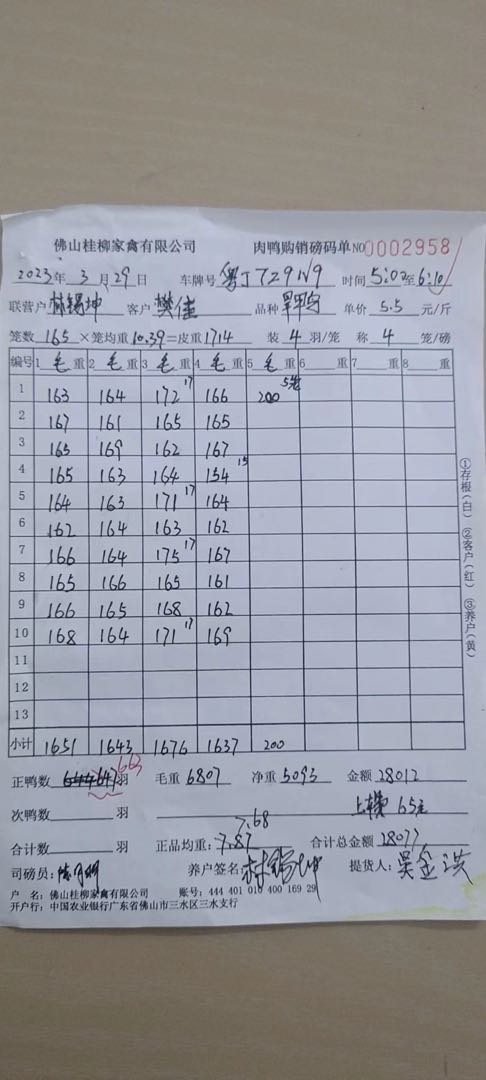 佛山桂柳家禽有限公司 肉鸭购销磅码单 NO 0002958
2023年 3 月 29 日 车牌号 粤J7Z9N9 时间 5:02至6:10
联营户 林锡坤 客户 樊佳 品种 单价 5.5 元/斤
笼数 165 ×笼均重 10.39 =皮重 1714 装 4 羽/笼 称 4 笼/磅
编号 1 毛 重 2 毛 重 3 毛 重 4 毛 重 5 毛 重 6 重 7 重 8 重
1 163 164 172 17 166 200 5笼
2 167 161 165 165
3 165 169 162 167
4 165 163 164 154 15
5 164 163 171 17 164
6 162 164 163 162
7 166 164 175 17 167
8 165 166 165 161
9 166 165 168 162
10 168 164 171 17 169
11
12
13
小计 1651 1643 1676 1637 200
正鸭数 644 647 663 羽 毛重 6807 净重 5093 金额 28012
次鸭数 羽 65元
7.68
合计数 羽 正品均重: 7.87 合计总金额 28077
司磅员: 养户签名: 林锡坤 提货人: 吴金洪
户 名: 佛山桂柳家禽有限公司 账号: 444 401 010 400 169 29
开户行: 中国农业银行广东省佛山市三水区三水支行
①存根(白) ②客户(红) ③养户(黄)